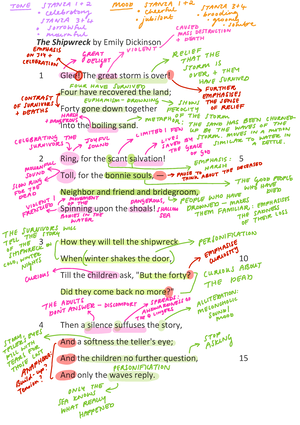 TONE
STANZA 1+2
• celebratory
STANZA 3+4
• sorrowful
• mournful
MOOD
STANZA 1+2
• cheerful
• jubilant
STANZA 3+4
• brooding
• gloomy
• sombre
The Shipwreck by Emily Dickinson
CAUSED MASS DESTRUCTION + DEATH
EMPHASIS ON JOY + CELEBRATION
GREAT DELIGHT
VIOLENT
RELIEF THAT THE STORM IS OVER + THEY HAVE SURVIVED
1 Glee! The great storm is over!
FOUR HAVE SURVIVED
Four have recovered the land;
CONTRAST OF SURVIVORS + DEATHS
EUPHEMISM - DROWNING
SHOWS FEROCITY
FURTHER EMPHASISES THE SENSE OF RELIEF
Forty gone down together
METAPHOR OF THE STORM
Into the boiling sand.
THE SAND HAS BEEN CHURNED UP BY THE WAVES OF THE STORM, MOVES IN A MOTION SIMILAR TO WATER IN A KETTLE
CELEBRATING THE SURVIVORS
JOYFUL SOUND
LIMITED
SAVED
2 Ring, for the scant salvation! 5
EMPHASIS: HARSH
MOURNFUL SOUND
SIGN RING FOR THE DEAD
Toll, for the bonnie souls, —
PAUSE TO THINK ABOUT THE DECEASED
Neighbor and friend and bridegroom,
THE GOOD PEOPLE WHO HAVE DIED
VIOLENT! FRENZIED
MOVEMENT OF THE BODIES IN THE WATER
DANGEROUS,
PEOPLE WHO HAVE DROWNED - MAKES THEM FAMILIAR: EMPHASISES THE SADNESS OF THEIR LOSS
Spinning upon the shoals!
THE SURVIVORS WILL TELL THE STORY ON COLD WINTER NIGHTS
3 How they will tell the shipwreck
PERSONIFICATION
When winter shakes the door, 10
EMPHASISE CURIOSITY
CURIOUS
Till the children ask, "But the forty?
CURIOUS ABOUT THE DEAD
Did they come back no more?"
THE ADULTS DON'T ANSWER - DISCOMFORT
ALLITERATION: MELANCHOLIC SOUND + MOOD
4 Then a silence suffuses the story,
And a softness the teller's eye;
STOP ASKING
ANAPHORA: Build-up? Tension?
And the children no further question, 15
PERSONIFICATION
And only the waves reply.
ONLY THE SEA KNOWS WHAT REALLY HAPPENED